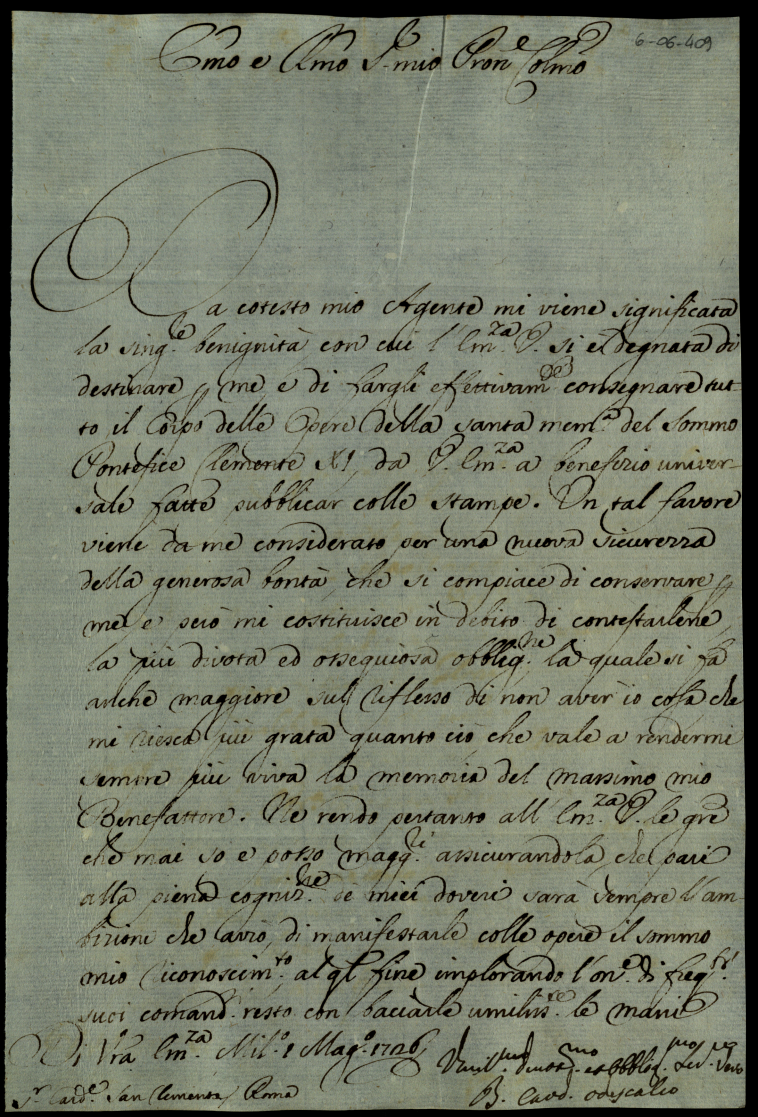 6-06-409
Emo e Rmo Sr mio Pron.e Colmo
Da cotesto mio Agente mi viene significata
la sing.le benignità con cui l'Em.za V. si è degnata di
destinare p me, e di fargli effettivam.te consegnare tut-
to il Corpo delle Opere della santa mem.a del Sommo
Pontefice Clemente XI, da V. Em.za a benefizio univer-
sale fatte pubblicar colle stampe. Un tal favore
viene da me considerato per una nuova sicurezza
della generosa bontà, che si compiace di conservare p
me, e però mi costituisce in debito di contestarlene
la più divota ed ossequiosa obblig.ne la quale si fà
anche maggiore sul riflesso di non aver io cosa che
mi riesca più grata quanto ciò, che vale a rendermi
sempre più viva la memoria del massimo mio
Benefattore. Ne rendo pertanto all'Em.za V. le gre
che mai so e posso magg.ri assicurandola, che pari
alla piena cogniz.ne de miei doveri sarà sempre l'am-
bizione che avrò, di manifestarle colle opere il sommo
mio riconoscim.to, al ql fine implorando l'on.e di freq.ti
suoi comandi resto con bacciarle umiliss.te le mani
Di Vra Em.za Mil.o 1 Mag.o 1726
Umil.mo Devot.mo et obblig.mo Ser. Vero
Sr Card.e San Clemente, Roma
B. Card. Odescalco